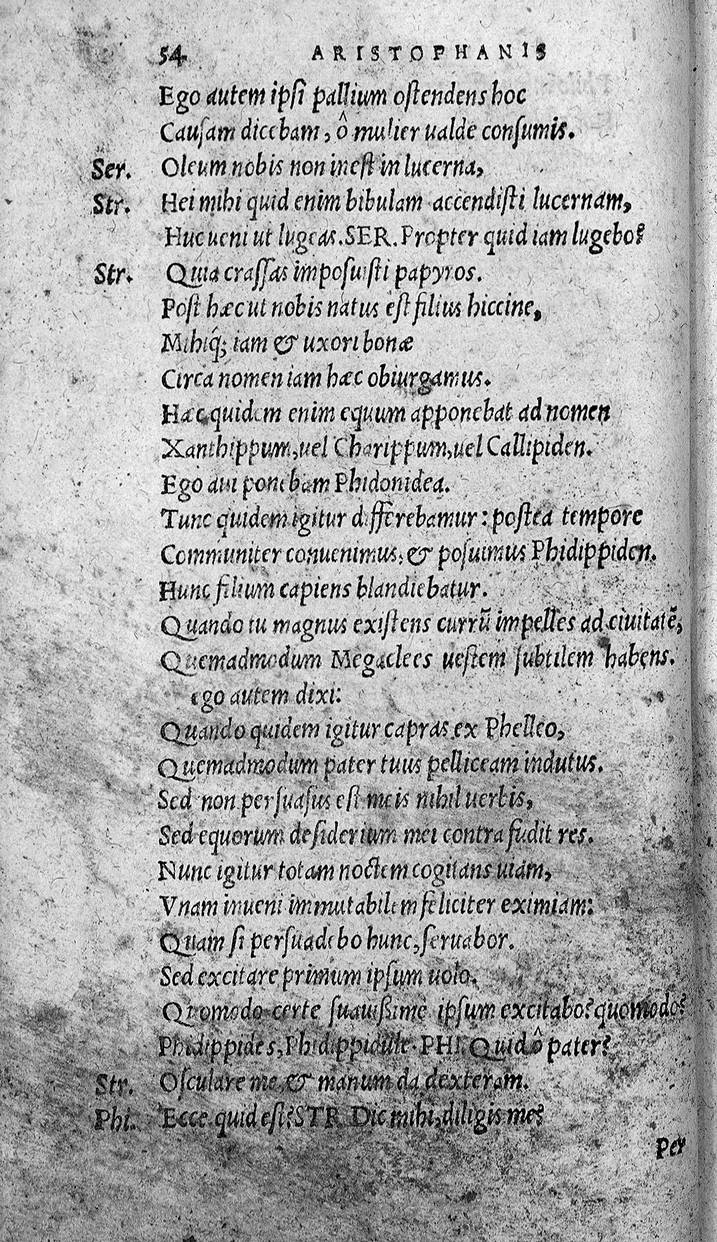 54 ARISTOPHANIS
Ego autem ipsi pallium ostendens hoc
Causam dicebam, ô mulier ualde consumis.
Ser. Oleum nobis non inest in lucerna,
Str. Hei mihi quid enim bibulam accendisti lucernam,
Huc ueni ut lugeas. SER. Propter quid iam lugebo?
Str. Quia crassas imposuisti papyros.
Post hæc ut nobis natus est filius hiccine,
Mihiq́; iam & uxori bonæ
Circa nomen iam hæc obiurgamus.
Hæc quidem enim equum apponebat ad nomen
Xanthippum, uel Charippum, uel Callipiden.
Ego aut ponebam Phidonidea.
Tunc quidem igitur differebamur: postea tempore
Communiter conuenimus, & posuimus Phidippiden.
Hunc filium capiens blandiebatur.
Quando tu magnus existens currũ impelles ad ciuitatẽ,
Quemadmodum Megaclees uestem subtilem habens.
ego autem dixi:
Quando quidem igitur capras ex Phelleo,
Quemadmodum pater tuus pelliceam indutus.
Sed non persuasus est meis nihil uerbis,
Sed equorum desiderium mei contra fudit res.
Nunc igitur totam noctem cogitans uiam,
Vnam inueni immutabilem feliciter eximiam:
Quam si persuadebo hunc, seruabor.
Sed excitare primum ipsum uolo.
Quomodo certe suauißime ipsum excitabo? quomodo?
Phidippides, Phidippidule. PHI. Quid ô pater?
Str. Osculare me, & manum da dexteram.
Phi. Ecce. quid est? STR. Dic mihi, diligis me?
Per